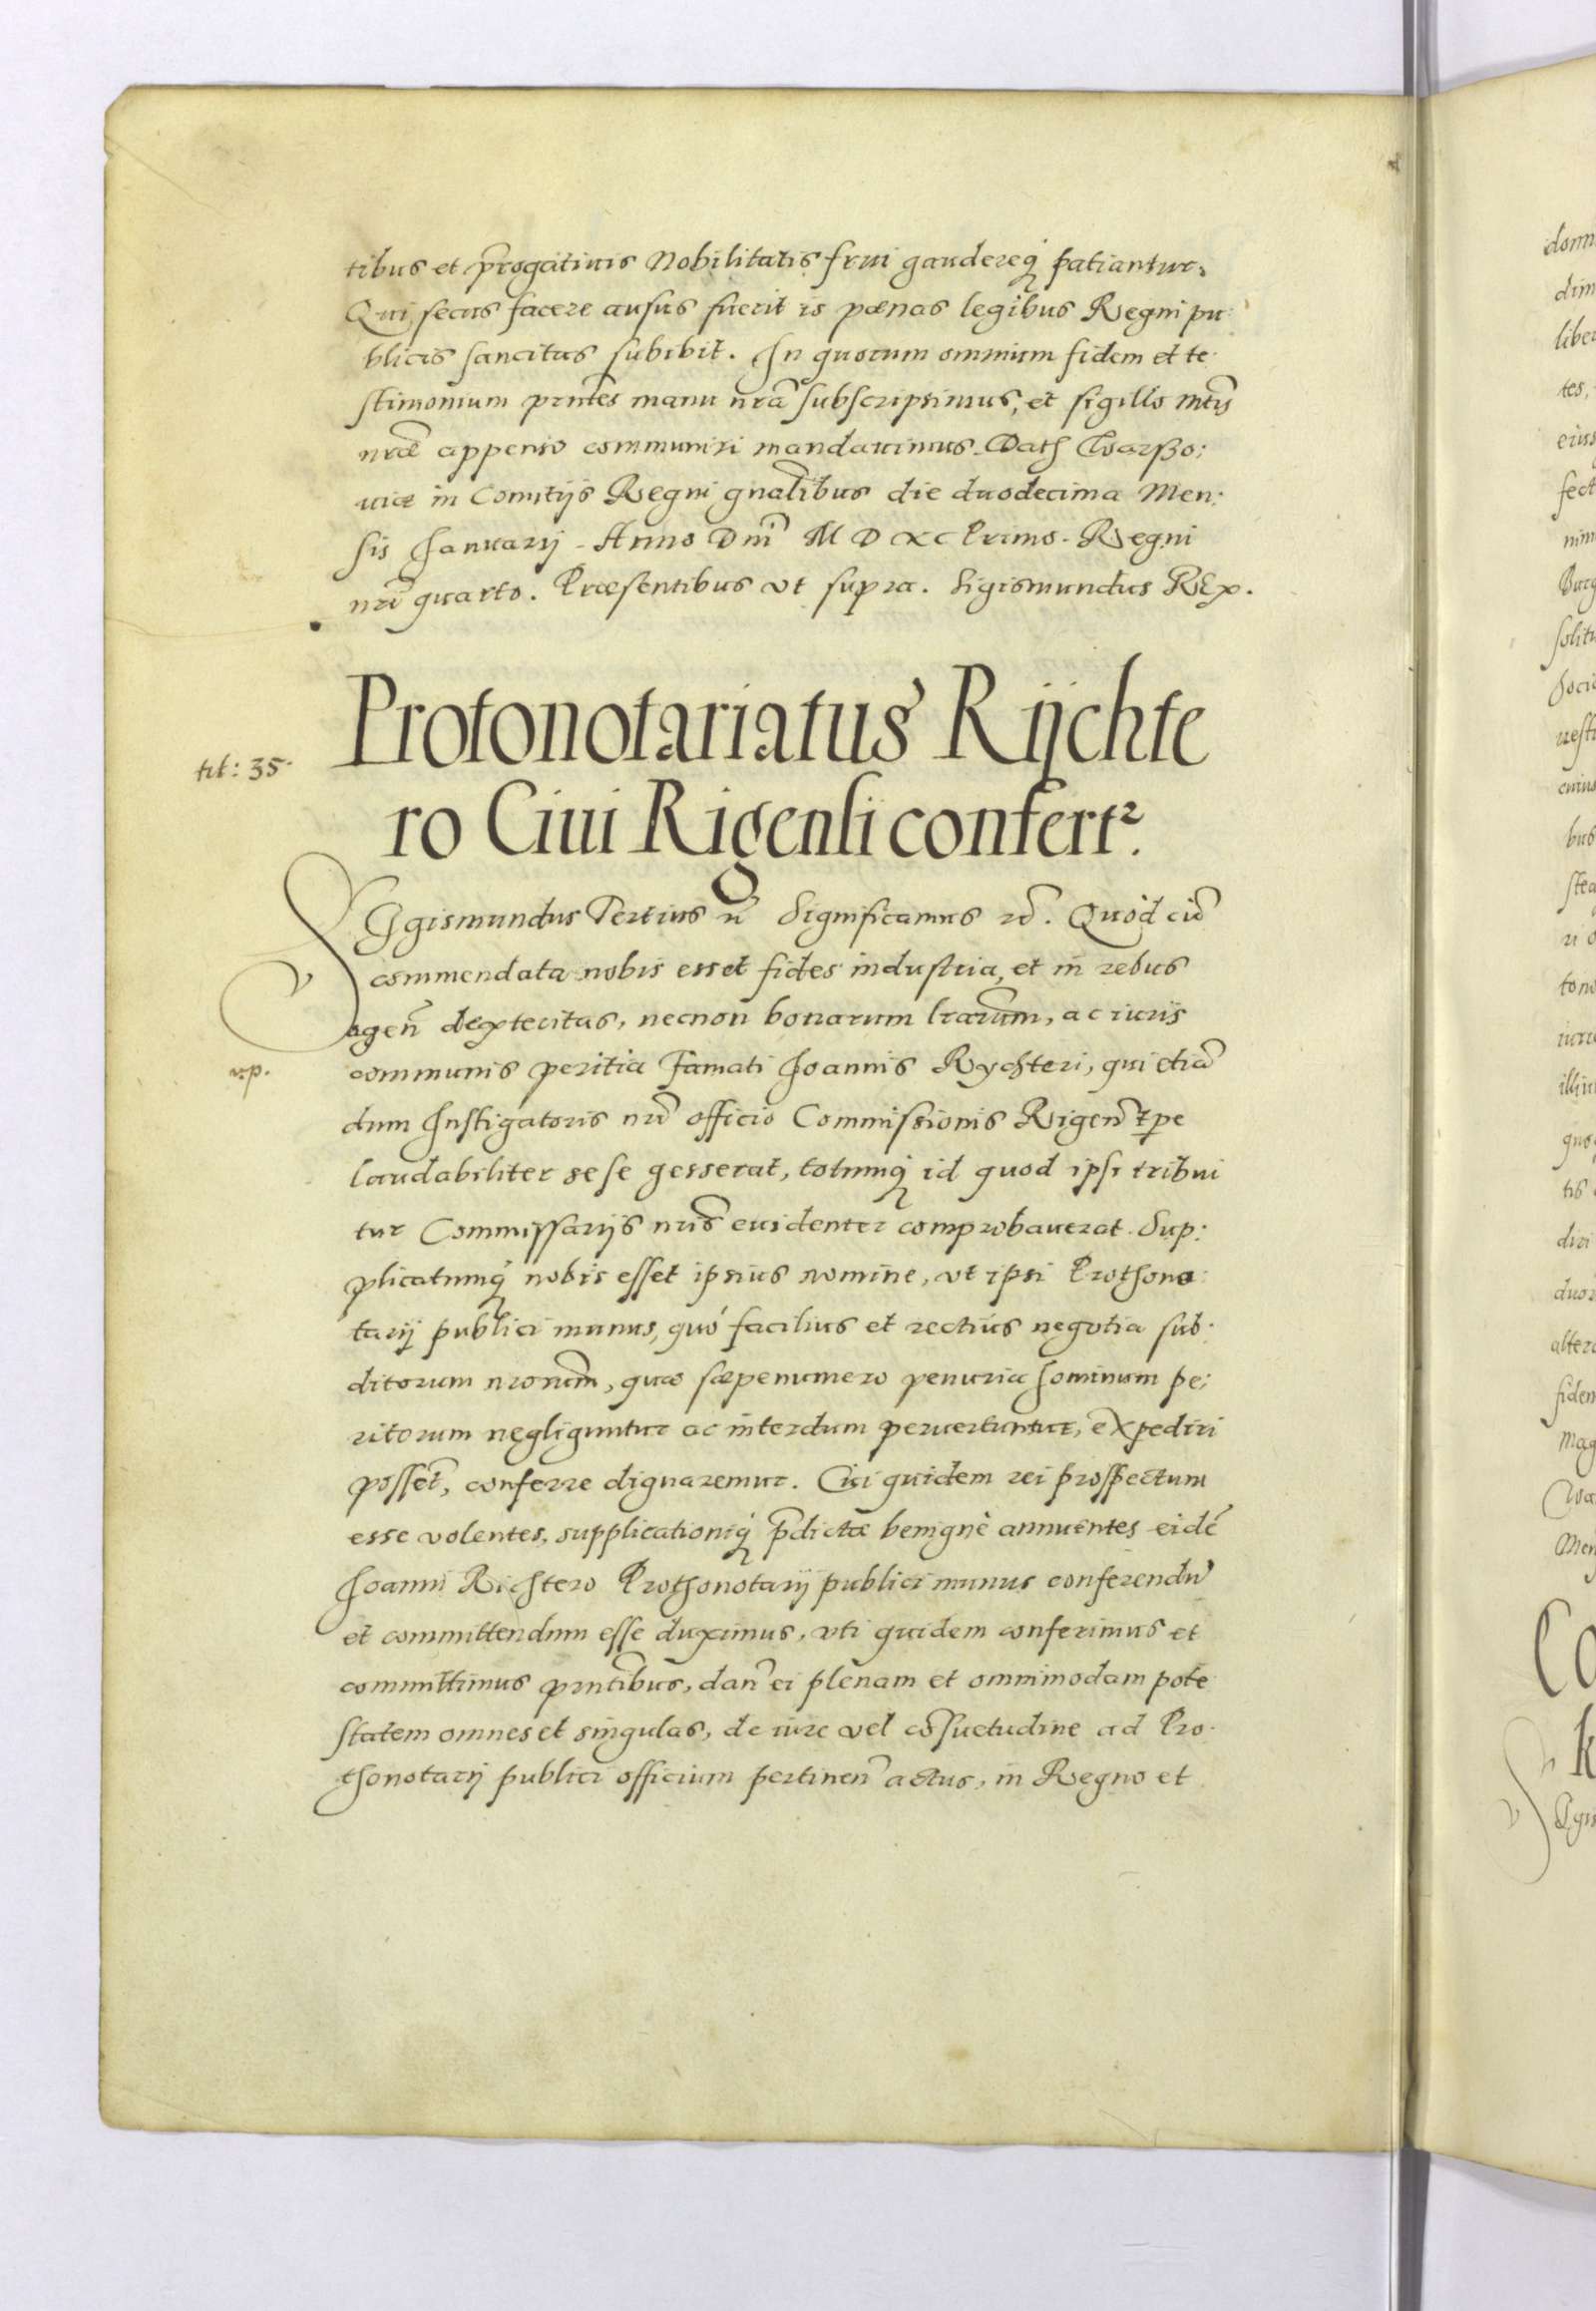 tibus et prõgatiuis Nobilitatis frui gaudereq́ patiantur.
Qui secus facere ausus fuerit is pœnas legibus Regni pu:
blicis sancitas subibit. In quorum omnium fidem et te:
stimonium pñtes manu nrã subscripsimus, et sigillo Mtis
nræ appenso communiri mandauimus. Dath Warszo:
uiæ in Comitijs Regni gnãlibus die duodecima Men:
sis Januarij. Anno Dni M D XC Primo. Regni
nri quarto. Præsentibus vt supra. Sigismundus REx.
tit: 35.
Protonotariatus Rijchte
ro Ciui Rigensi confert².
SIgismundus Tertius Significamus Quòd cũ
commendata nobis esset fides industria, et in rebus
ageñ dexteritas, necnon bonarum lrarũm, ac iuris
communis peritia Famati Joannis Rychteri, qui etiã
dum Instigatoris nri officio Commissionis Rigeñ tpe
laudabiliter sese gesserat, totumq́ id quod ipsi tribui
tur Commissarijs nris euidenter comprobauerat. Sup:
plicatumq́ nobis esset ipsius nomine, vt ipsi Prothono:
tarij publici munus, quó facilius et rectiùs negotia sub:
ditorum nrorum, quæ sæpenumero penuria hominum pe:
ritorum negliguntur ac interdum peruertuntur, expediri
posset, conferre dignaremur. Cui quidem rei prospectum
esse volentes, supplicationiq́ p̃dictæ benignè annuentes eidẽ
Joanni Richtero Prothonotarij publici munus conferendũ
et committendum esse duximus, vti quidem conferimus et
committimus pñtibus, dañ ei plenam et omnimodam pote
statem omnes et singulas, de iure vel cõsuetudine ad Pro:
thonotarij publici officium pertineñ actus, in Regno et